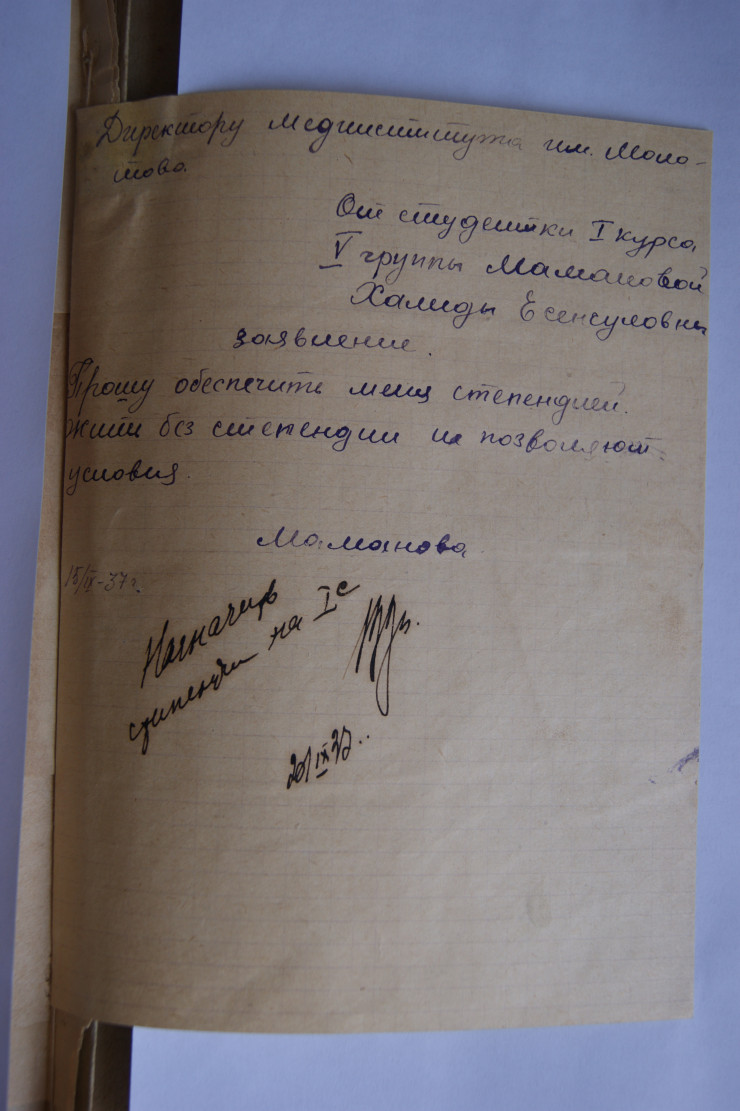 Директору мединститута им. Моло-
това
От студентки I курса
V группы Мамановой
Халиды Есенсуловны
заявление.
Прошу обеспечить меня степендией.
жить без степендии не позволяют
условия.
Маманова
15/IX-37г.
Назначить
стипендии на I с
20/IX 37..